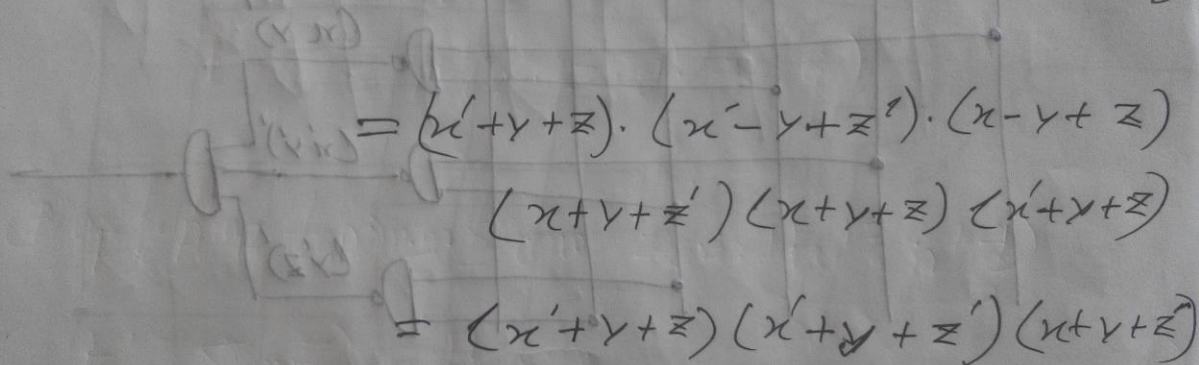 = (x'+y+z). (x'-y+z'). (x-y+z)
(x+y+z') (x+y+z) (x'+y+z)
= (x'+y+z) (x'+y+z') (x+y+z')